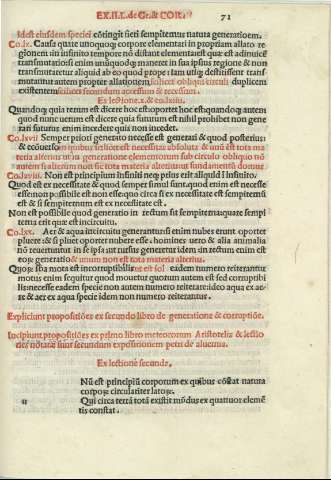 EX.II.L. de Gr. et COR. 71
Idest eiusdem speciei cōtingit fieri sempiternus natura generationem.
Co.lx. Causa quare unoquoq; corpore elementari in propriam allato re
gionem in infinito tempore nō distant elementares; quē est a adinuicē
transmutatiōis enim unūquodq; maneret in sua ipsius regione & non
transmutaretur aliquid ab eo quod prope : iam utiq; destitissent trans
mutātur autem propter allationem, scilicet obliquam accessum duplicem
existentem scilicet secundum accessum & recessum.
Ex lectione .x. & exclusiu.
Quandoq; quia uerum est dicere hoc est oportet hoc est quandoq; autem
quod nunc uerum est dicere quia futurum est nihil prohibet non gene
rari futurus enim incedere quis non incedet.
Co.lxvii Semper priori generato necesse est generari & quod posterius:
& ecōuerso in quibus scilicet est necessitas absoluta & unū est tota ma
teria alterius ut in generatione elementorum sub circulo obliquo nō
autem si alterum non sit tota materia alterius ut fundamentū domus
Co.lxviii. Non est principium infiniti neq; prius erit aliquid ī infinito.
Quod est ex necessitate & quod semper simul sunt. quod enim est necesse
esse: non possibile est non esse. quo circa si ex necessitate est sempiternū
est & si sempiternum est ex necessitate est .
Non est possibile quod generatio in rectum sit sempiterna: quare sempi
terna erit quæ est in circuitu.
Co.lxx. Aer & aqua in circuitu generantur: si enim nubes erunt oportet
pluere & si pluet oportet nubere esse . homines uero & alia animalia
nō reuertuntur in se ipsa ut rursus generetur idem in rectum enim est
eorū generatio & unum non est tota materia alterius.
Quoꝝ subā mota est incorruptibilis ut est sol eadem numero reiterantur
motus enim sequitur quod mouetur quotum autem est sed corruptibi
lis: necesse eadem specie non autem numero reiterare: ideo aqua ex ae
re & aer ex aqua specie idem non numero reiterantur.
Expliciunt propositiōes ex secundo libro de generatione & corruptiōe.
Incipiunt propositiōes ex primo libro metheororum Aristotelis & lectio
nes notatæ sunt secundum expositionem petri de aluernia.
Ex lectione secunda.
Nū est principiū corporum ex quibus cōstat natura
corpoꝝ circulariter latoꝝ.
ii Qui circa terrā totā existit mūdus ex quatuor elemē
tis constat .